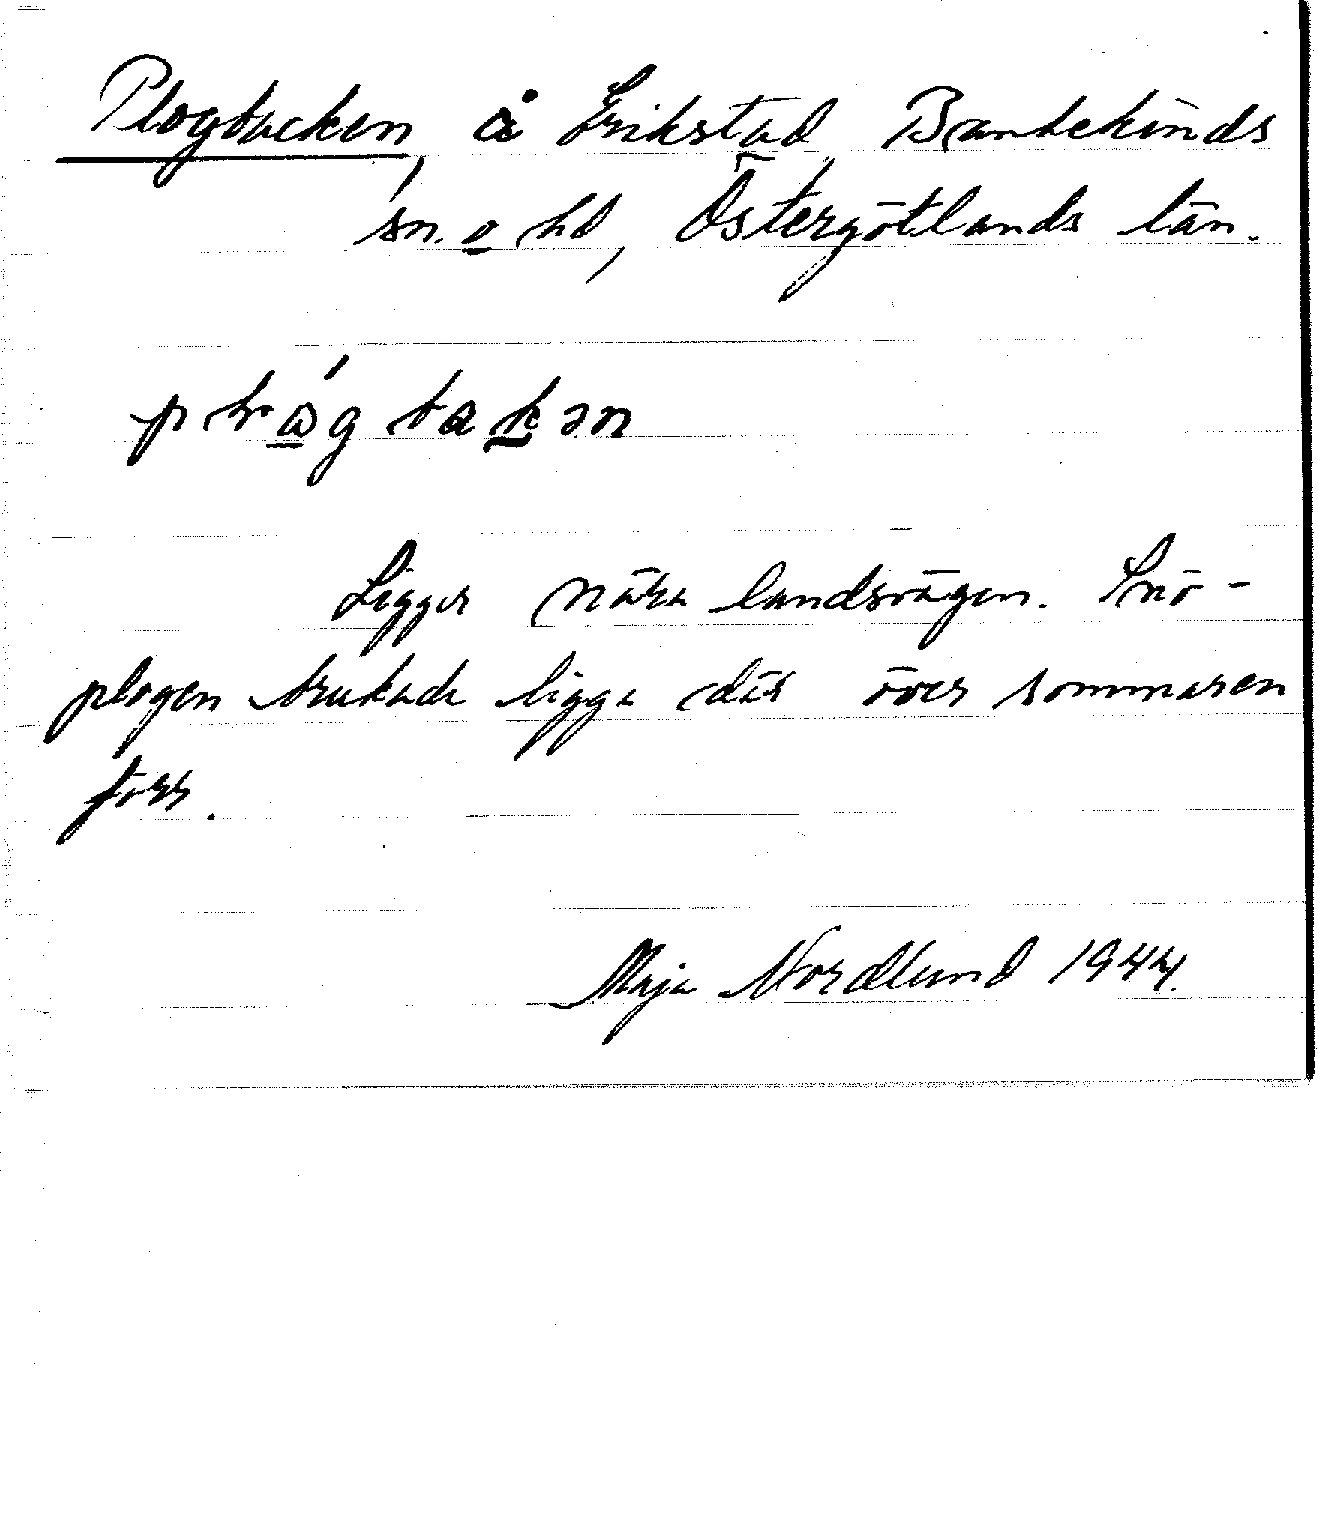 Plogbacken, å Erikstad, Bankekinds
sn. o hd, Östergötlands län.
Ligger nära landsvägen. Snö-
plogen brukade ligga där över sommaren
förr.
Maja Nordlund 1944.